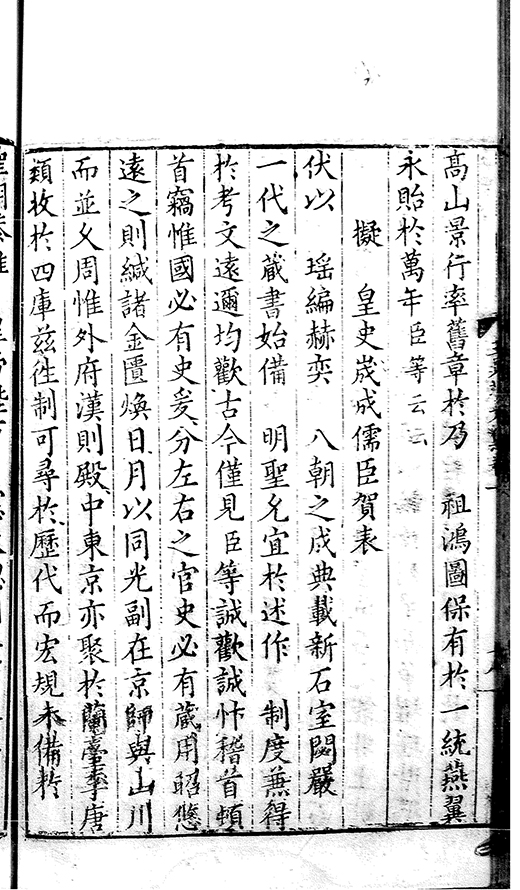 高山景行率舊章於乃　祖鴻圖保有於一統燕翼
永貽於萬年臣等云云
擬　皇史宬成儒臣賀表
伏以　瑤編赫奕　八朝之成典載新石室閟嚴
一代之藏書始備　明聖允宜於述作　制度兼得
於考文遠邇均歡古今僅見臣等誠歡誠忭稽首頓
首竊惟國必有史爰分左右之官史必有藏用昭悠
遠之則緘諸金匱煥日月以同光副在京師與山川
而並久周惟外府漢則殿中東京亦聚於蘭臺季唐
類收於四庫茲徃制可尋於歷代而宏規未備於